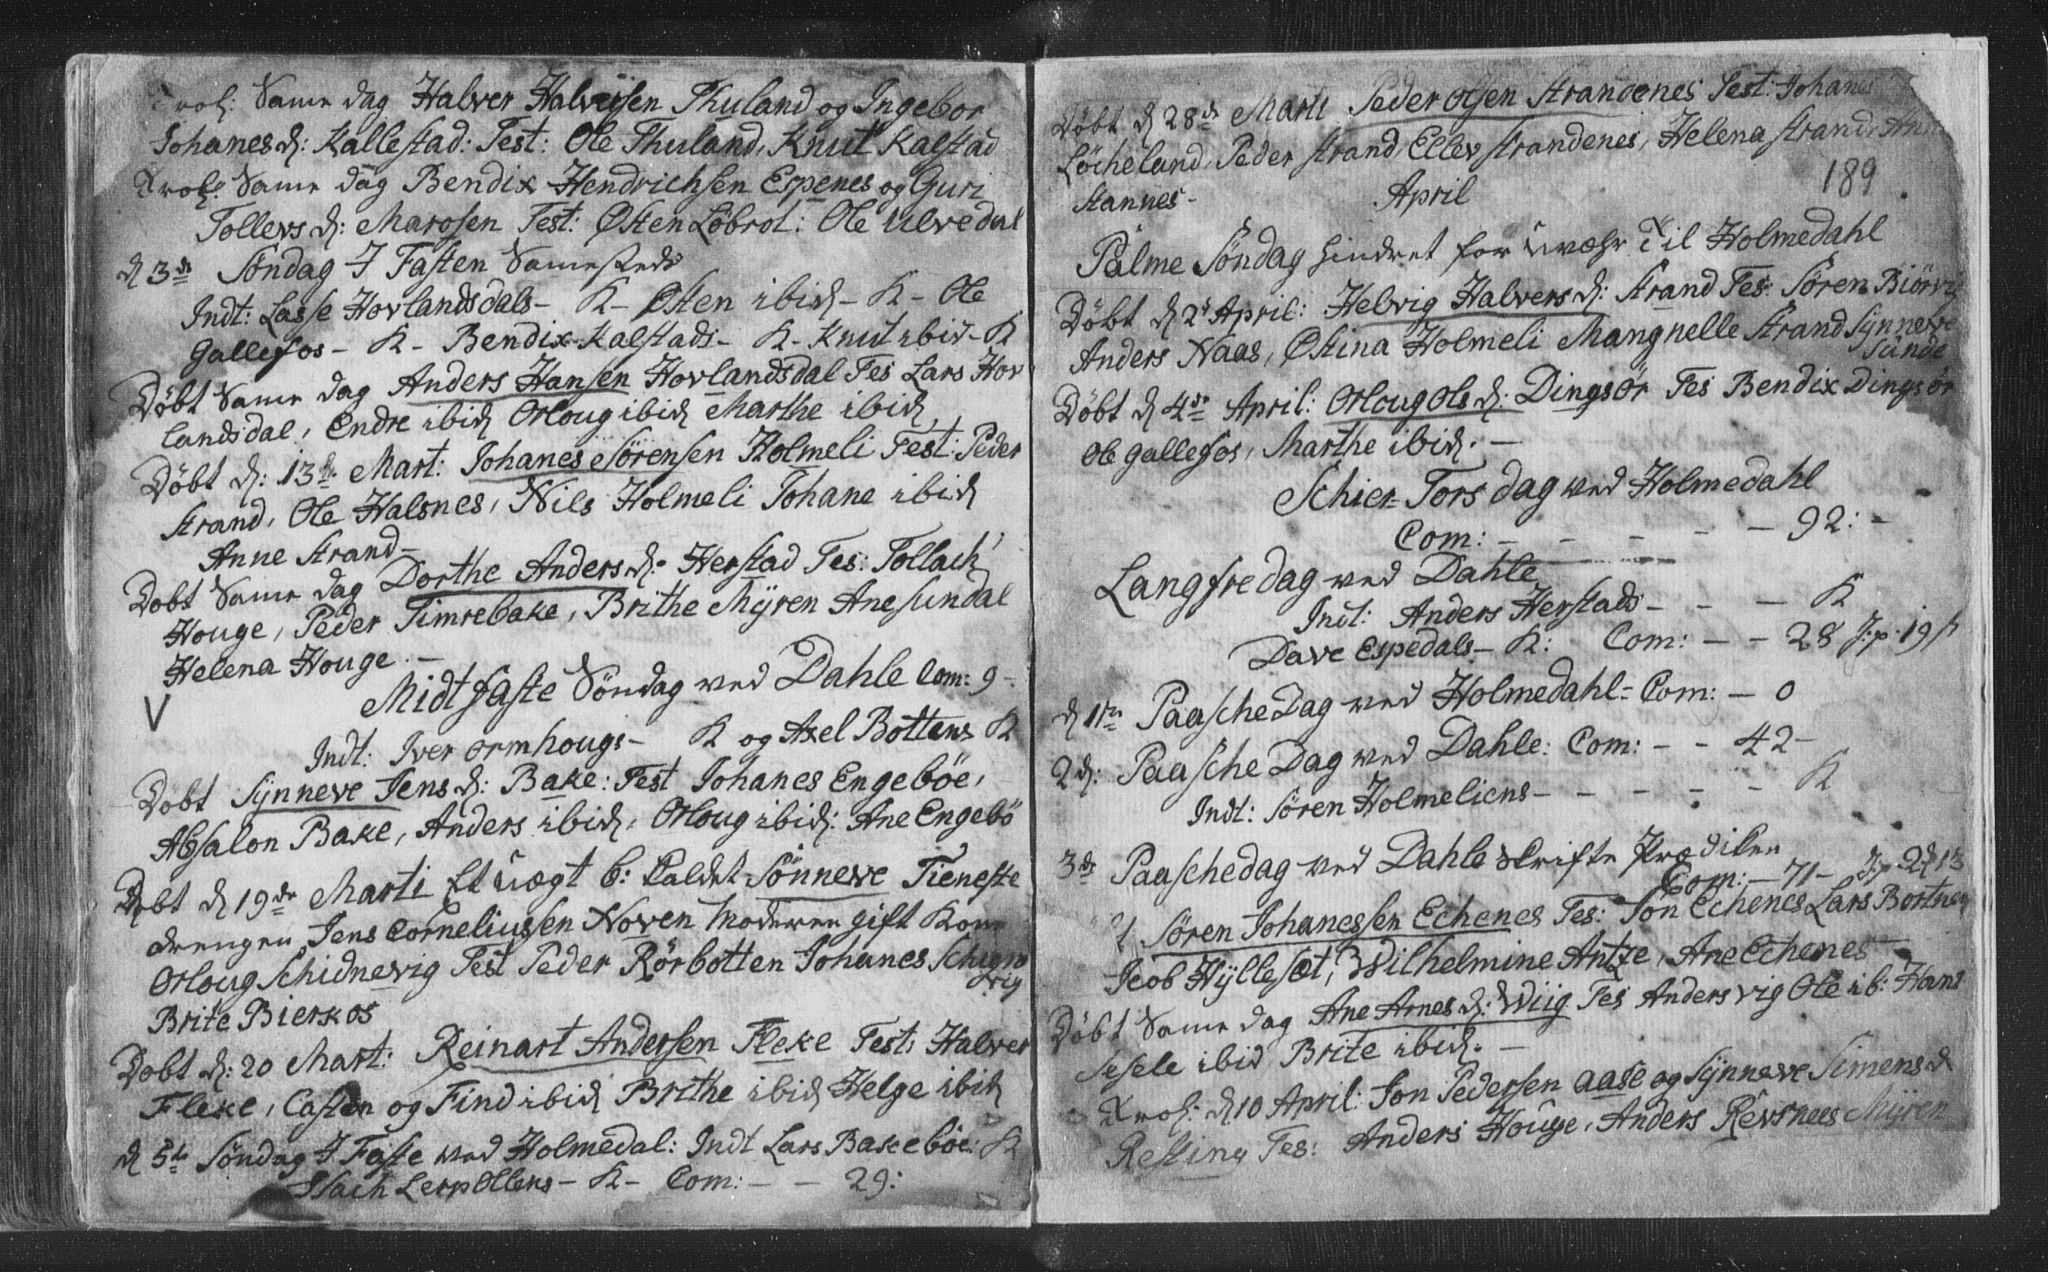 Trol: Same dag Halver Halversen Thuland og Ingebor
Johanes d: Kallestad: Test: Ole Thuland, Knut Kalstad
Trol: Same dag Bendix Hendrichsen Espenes og Guri
Tollevs d: Marosen Test: Østen Löbrot: Ole Ulvedal
d 3de Søndag I Fasten Samesteds
Indt: Lasse Hovlandsdals - K - Østen ibid - K - Ole
Gallefos - K - Bendix Kalstads - K - Knut ibid - K
Döbt Same dag Anders Hansen Hovlandsdal Tes Lars Hov
landsdal, Endre ibid Orloug ibid Marthe ibid
Döbt d: 13de Mart: Johanes Sørensen Holmeli Test: Peder
Strand, Ole Halsnes, Nils Holmeli Johane ibid
Anne Strand -
Döbt Same dag Dorthe Anders d: Herstad Tes: Tollach
Houge, Peder Timrebake, Brithe Mÿren Ane Sundal
Helena Houge. -
V Midtfaste Søndag ved Dahle Com: 9 -
Indt: Iver Ormhougs - K og Axel Bottens K
Döbt Sÿnneve Jens d: Bake: Test Johanes Engebøe,
Absalon Bake, Anders ibid, Orloug ibid: Ane Engebö
Döbt d 19de Marti Et uægt b: kaldet Sönneve Tieneste
drengen Jens Corneliussen Noven Moderen gift Kone
Orloug Schidnevig Test Peder Rörbotten Johanes
Brite Bierkos
Döbt d: 20 Mart: Reinart Andersen Fleke Test: Halver
Fleke, Casten og Find ibid Brithe ibid Helge ibid
d 5te Søndag I Faste ved Holmedal: Indt Lars Bakebøe: K
Lerpollens - K - Com: - - 29:
Döbt d 28de Marti Peder Olsen Strandenes Test: Johanes
Löcheland, Peder Strand Ellev Strandenes, Helena Strand,
Stannes -
April
189
Palme Söndag hindret for uvæhr Til Holmedahl
Döbt d 2d April: Helvig Halvers d: Strand Tes: Sören
Anders Naas, Østina Holmeli Mangnelle Strand Sÿnneve
Sunde
Döbt d 4de April: Orloug Ols d: Dingsör Tes Bendix Dingsör
Ole Gallefos, Marthe ibid. -
Schier-Torsdag ved Holmedahl
Com: - - - - - 92: -
Langfredag ved Dahle
Indt: Anders Herstads - - - K
Dave Espedals - K: Com: - - 28
d 1te Paasche Dag ved Holmedahl = Com: - 0
2d: Paasche Dag ved Dahle: Com: - - 42 -
Indt: Sören Holmeliens - - - - - K
3de Paaschedag ved Dahle Skrifte Prædiken
Com: - 71 -
Sören Johanessen Echenes Tes: Jon Echenes Lars
Jcob Hÿllesæt, Wilhelmine Antze, Ane Echenes
Döbt Same dag Ane Arnes d: Wiig Tes Anders Vig Ole ib: Hans
Sesele ibid, Brite ibid. -
Trol: d 10 April: Jon Pedersen Aase og Sÿnneve Simens d
Resting Tes: Anders Houge, Anders Revsnes Mÿren